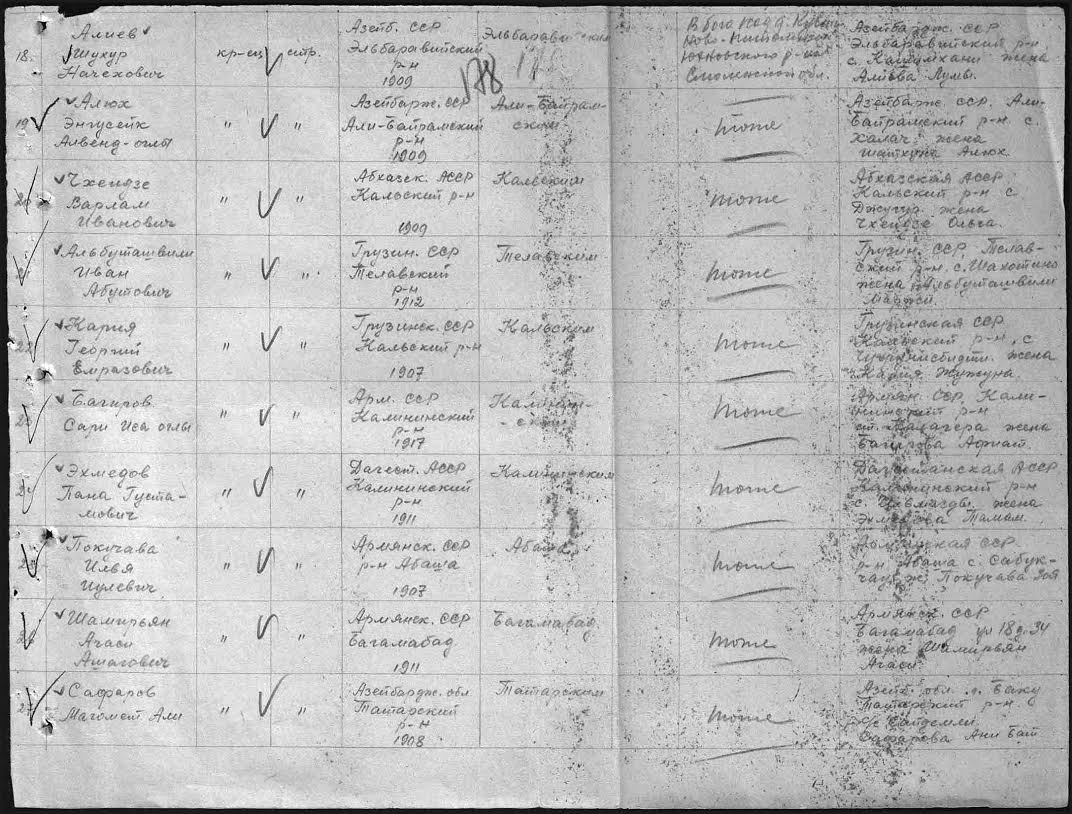 18. Алиев Шукур Начехович
кр-ец стр.
Азейб. ССР Эльбаравийский р-н 1909
Эльбаравийским
178
В бою под д.
Смоленской обл.
Азейбардж. ССР Эльбаравийский р-н, с. Кашамхани жена Алиева
19 Алюх Энгусейк Алвенд-оглы
" "
Азейбарж. ССР Али-Байрамский р-н 1909
Али-Байрам-ским
тоже
Азейбарж. ССР. Али-Байрамский р-н. с. Халач. жена Алюх.
20 Чхендзе Варлам Иванович
" "
Абхазск. АССР Кальский р-н 1909
Кальским
тоже
Абхазская АССР Кальский р-н с Джугур. жена Чхендзе Ольга.
21 Альбуташвили Иван Абутович
" "
Грузин. ССР Телавский р-н 1912
Телавским
тоже
Грузин. ССР, Телав-ский р-н. с. Шахотино жена Альбуташвили
22 Кария Георгий Емразович
" "
Грузинск. ССР Кальский р-н 1907
Кальским
тоже
Грузинская ССР Кальский р-н, с жена Кария Жужуна
23 Багиров Сари Иса оглы
" "
Арм. ССР Калининский р-н 1917
Калинин-ским
тоже
Армян. ССР, Кали-нинский р-н ст. Калагера жена Багирова
24 Эхмедов Пана Густа-мович
" "
Дагест. АССР Калининский р-н 1911
Калининским
тоже
Дагестанская АССР Калининский р-н с. жена Эхмедова Тамам.
25 Покучава Илья Иулевич
" "
Армянск. ССР р-н Абаша 1907
Абаша
тоже
Армянская ССР. р-н Абаша с. Сабук- ж. Покучава Зоя
26 Шамирьян Агаси Ашагович
" "
Армянск. ССР Багамабад 1911
Багамабад
тоже
Армянск. ССР Багамабад ул 18 д. 34 жена Шамирьян Агаси
27 Сафаров Магомет Али
" "
Азейбардж. обл Татарский р-н 1908
Татарским
тоже
Азейб. обл. г. Баку Татарский р-н. с/с Сафарова Ани